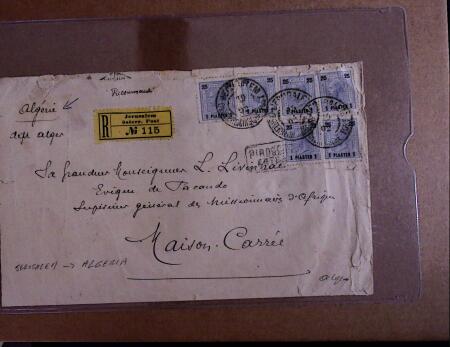 Algérie
R
Jerusalem
Österr. Post
№ 115
dept alger
25 25 25 25
1 PIASTER 1
1 PIASTER 1
1 PIASTER 1
Sa grandeur Monseigneur L. Livinhac
Evêque de Pacando
Supérieur général des Missionnaires d'Afrique
Maison-Carrée
JERUSALEM → ALGERIA
Alger